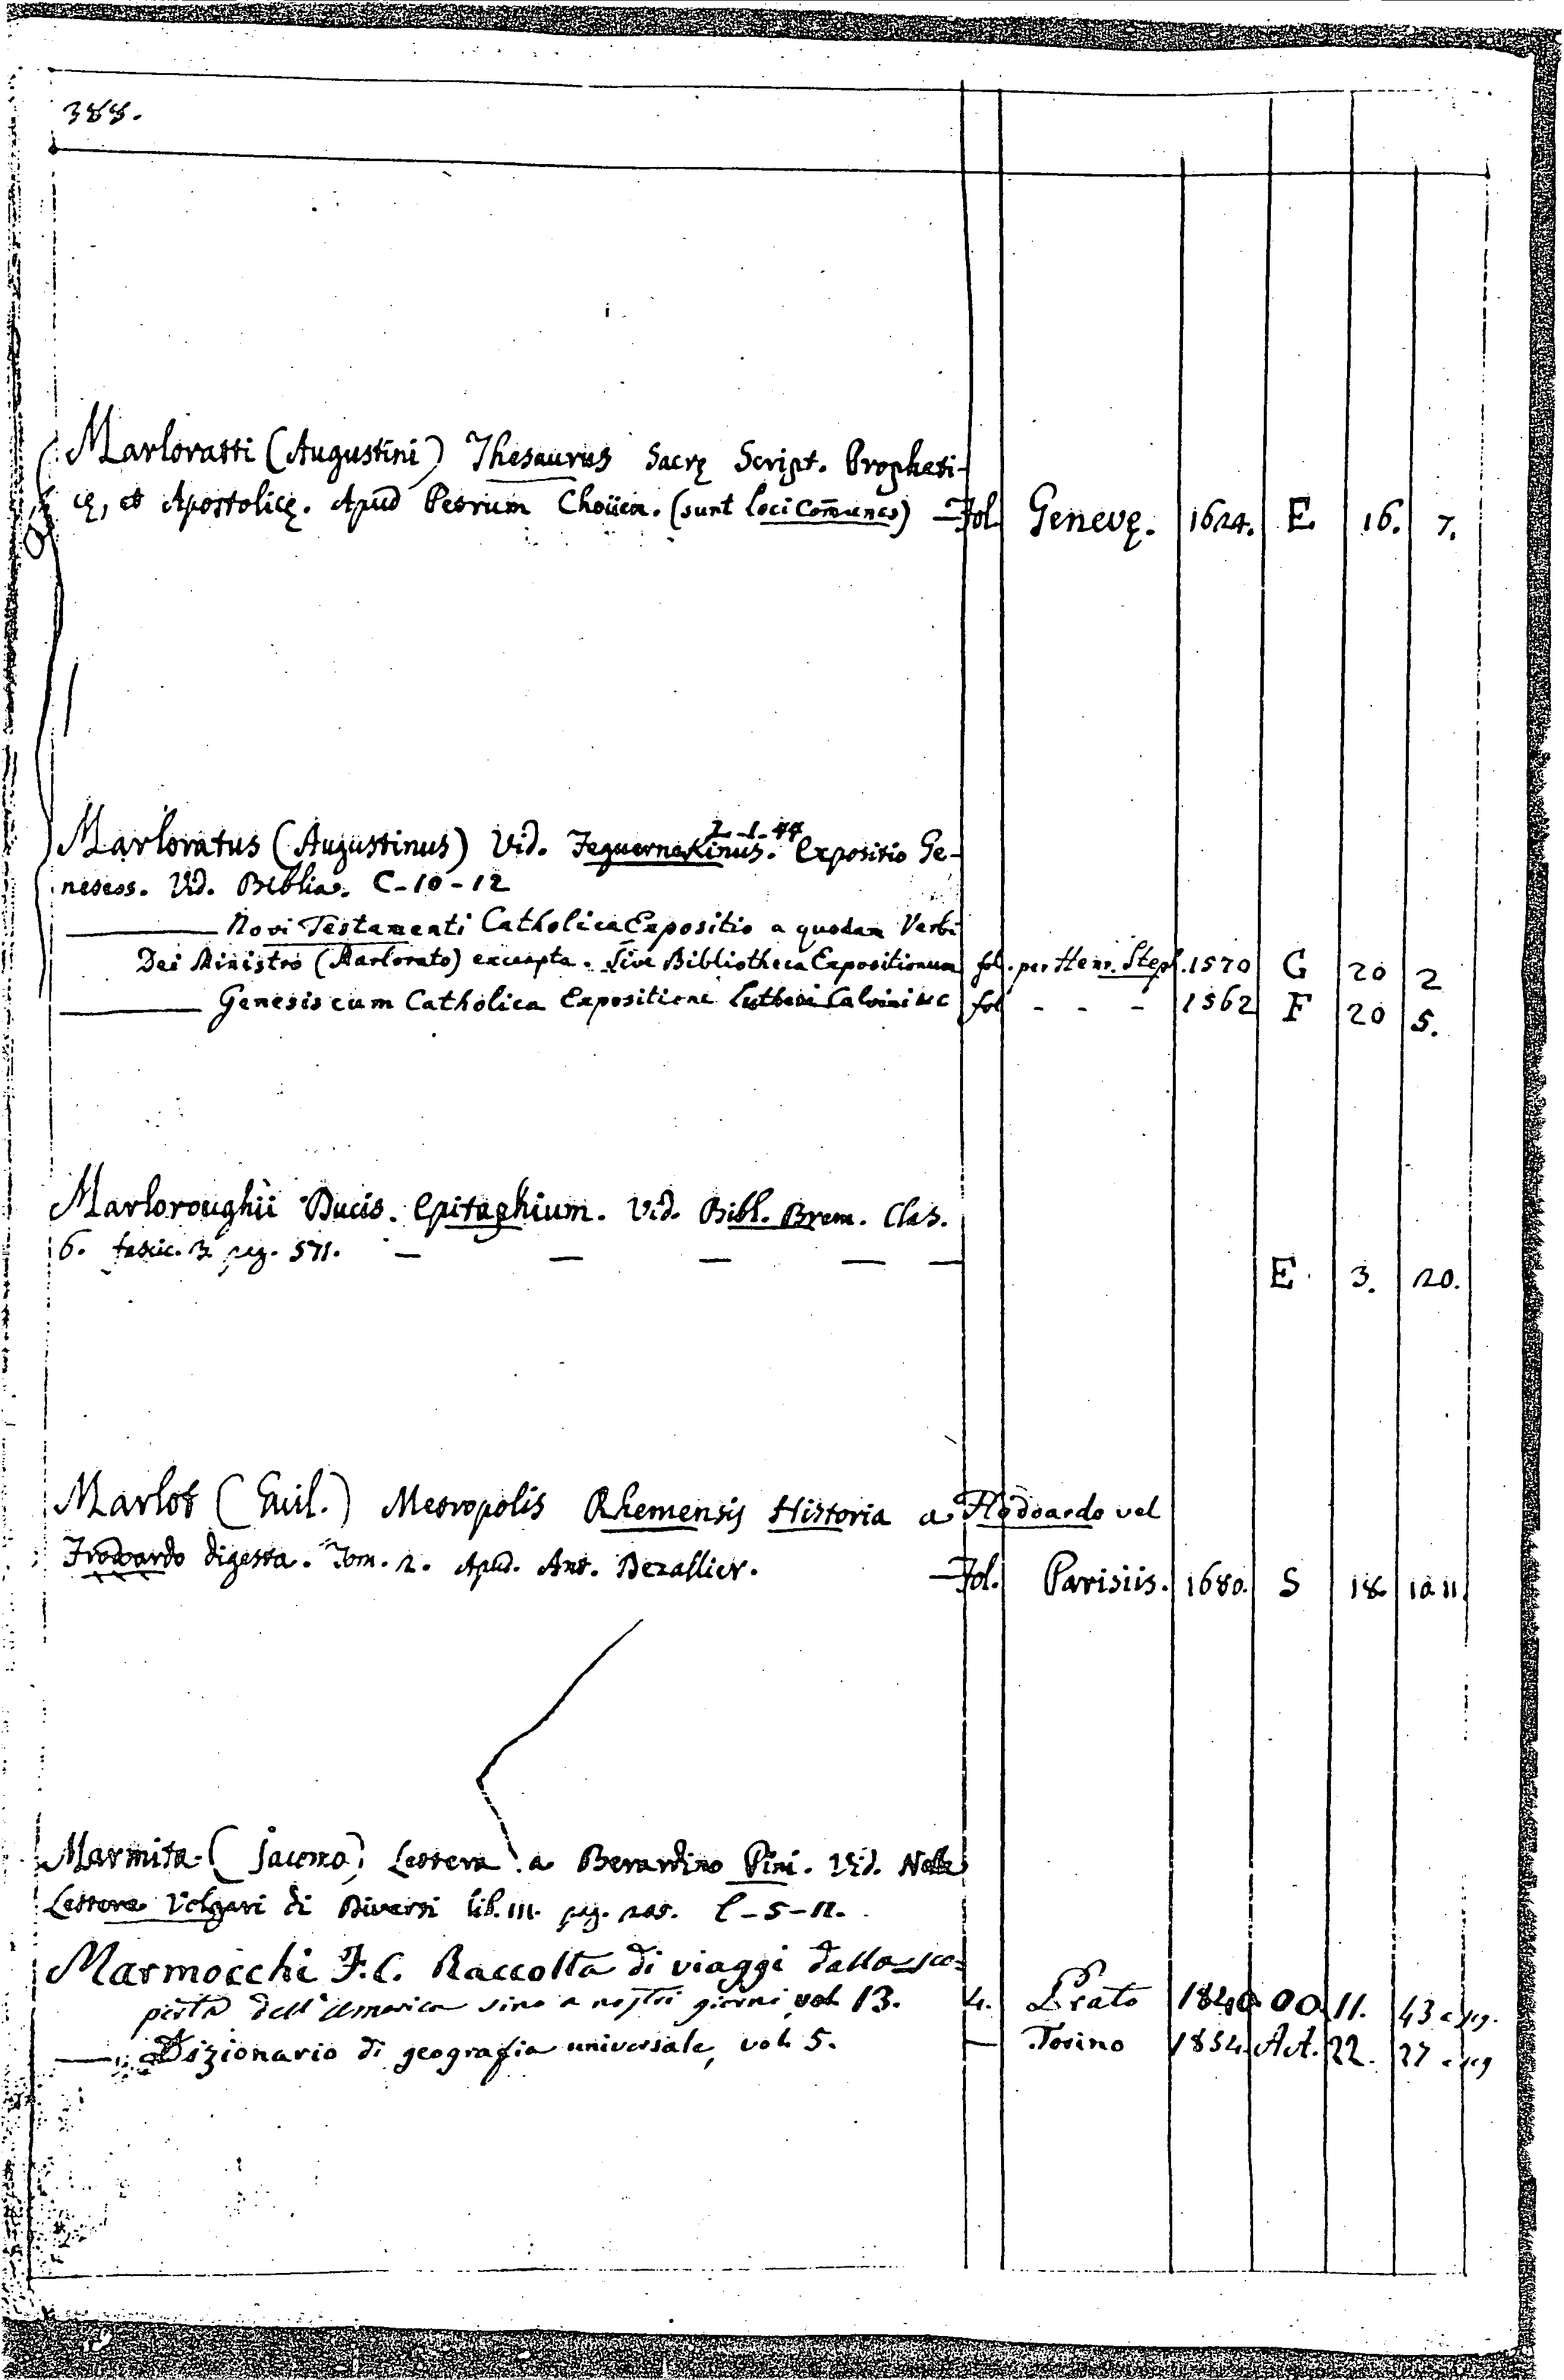 388.
Marloratti (Augustini) Thesaurus Sacrę Script. Propheti-
cę, et Apostolicę. Apud Petrum Choüen. (sunt loci Com̄unes) — Fol. Genevę. 1624. E 16. 7.
Marloratus (Augustinus) Vid. Feguernekinus. I-1-44 Expositio Ge-
neseos. Vid. Biblia. C-10-12
— Novi Testamenti Catholica Expositio a quodam Verbi
Dei Ministro (Marlorato) excerpta. Sive Bibliotheca Expositionum fol. per Henr. Steph. 1570 G 20 2
— Genesis cum Catholica Expositione Lutheri Calvini &c fol - - - 1562 F 20 5.
Marloroughii Ducis. Epitaphium. Vid. Bibl. Brem. Clas.
6. fascic. 3. pag. 571. — — — — — E 3. 20.
Marlot (Guil.) Metropolis Rhemensis Historia a Flodoardo vel
Frodoardo digesta. Tom. 2. Apud. Ant. Dezallier. — Fol. Parisiis. 1680. S 18. 10. 11.
Marmita (Jacomo) Lettera a Berardino Pini. Vid. Nelle
Lettere Volgari di Diversi lib. III. pag. 205. E-5-12.
Marmocchi F. C. Raccolta di viaggi dalla sco-
perta dell'America sino a nostri giorni vol. 13. 4. Prato 1840 OO 11. 43 e seg.
— Dizionario di geografia universale, vol. 5. — Torino 1854. AA. 22. 27 e seg